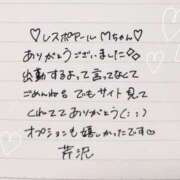 ♡レスポアール Mちゃん♡
ありがとうございました
出勤するよって言ってなくて
ごめんねε でもサイト見て
くれててありがとう(: :)
オプションも嬉しかったです♡
芹沢